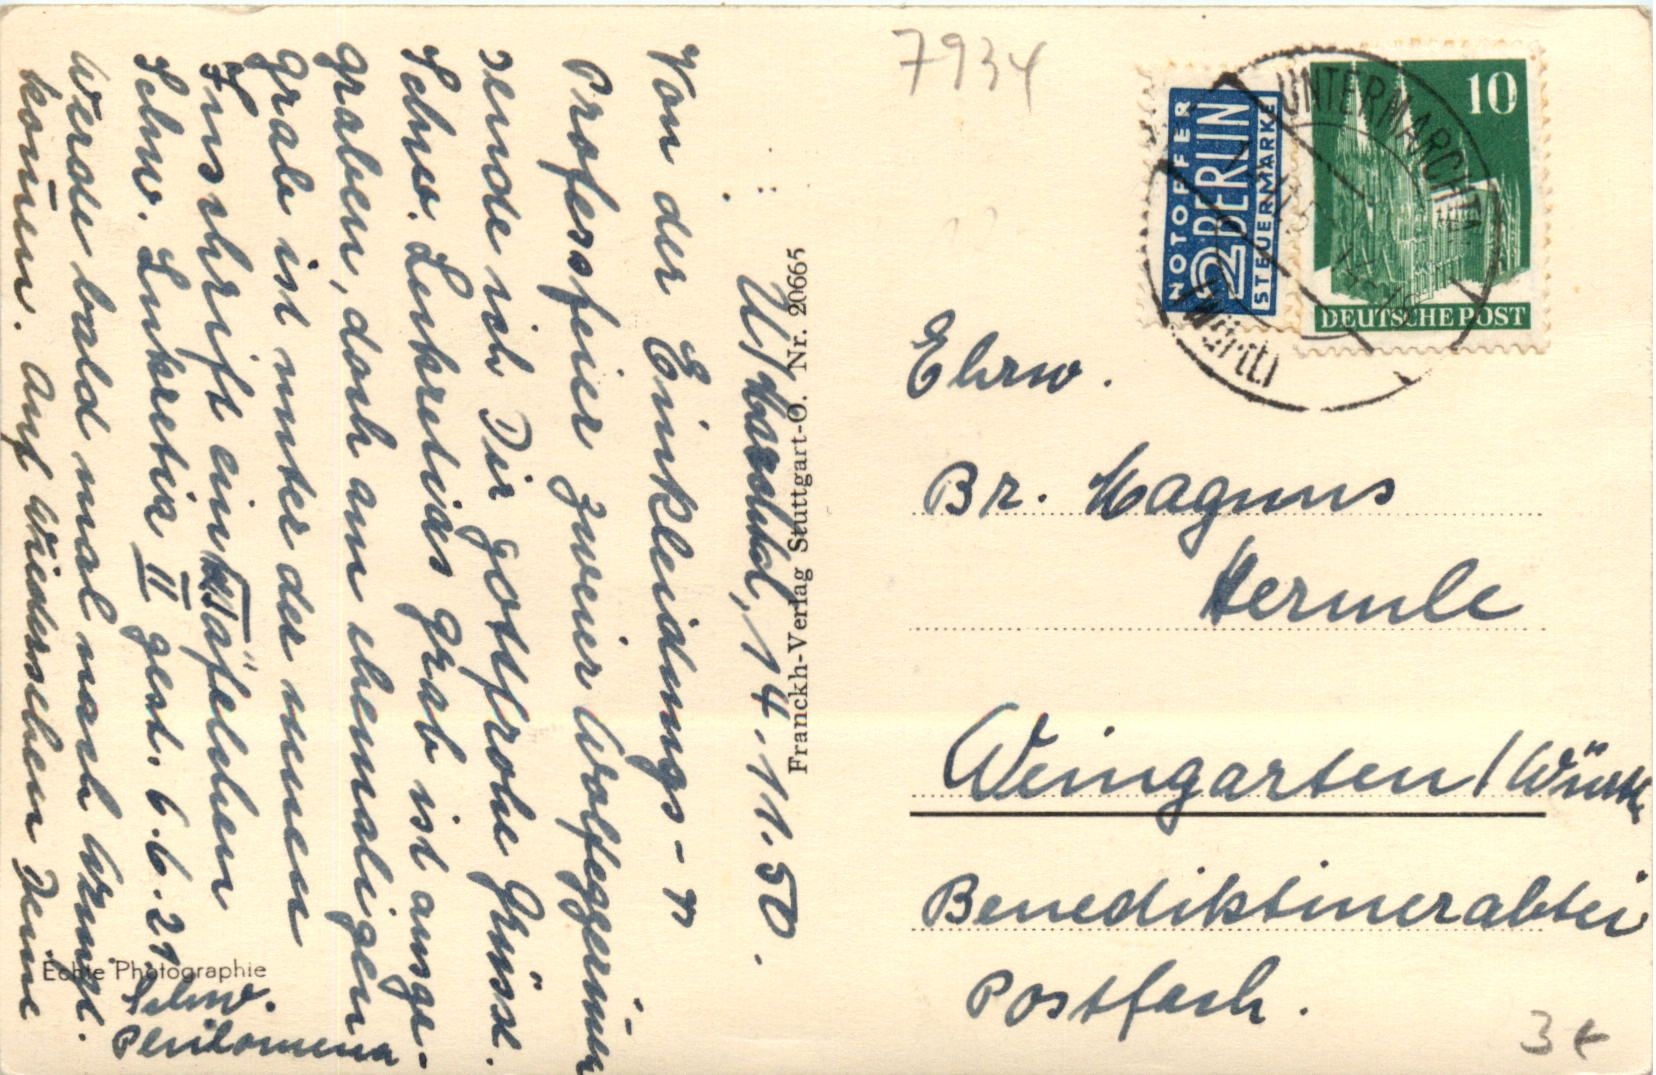 U/Marchtal, 14.11.50.
Von der Einkleidungs- u
Professfeier zweier Wolfeggerinnen
sende ich Dir gottfrohe Grüsse.
Schw. Lukretias Grab ist ausge-
graben, doch am ehemaligen
Grab ist unter der neuen
Inschrift ein Täfelchen
Schw. Lukretia II gest. 6.6.29.
Werde bald mal nach
können. Auf Wiedersehen Deine
Schw.
Philomena
Echte Photographie
Franckh-Verlag Stuttgart-O. Nr. 20665
7934
NOTOPFER
2 BERLIN
STEUERMARKE
10
DEUTSCHE POST
UNTERMARCHTAL
(Württ)
Ehrw.
Br. Magnus
Hermle
Weingarten / Württ
Benediktinerabtei
Postfach.
3